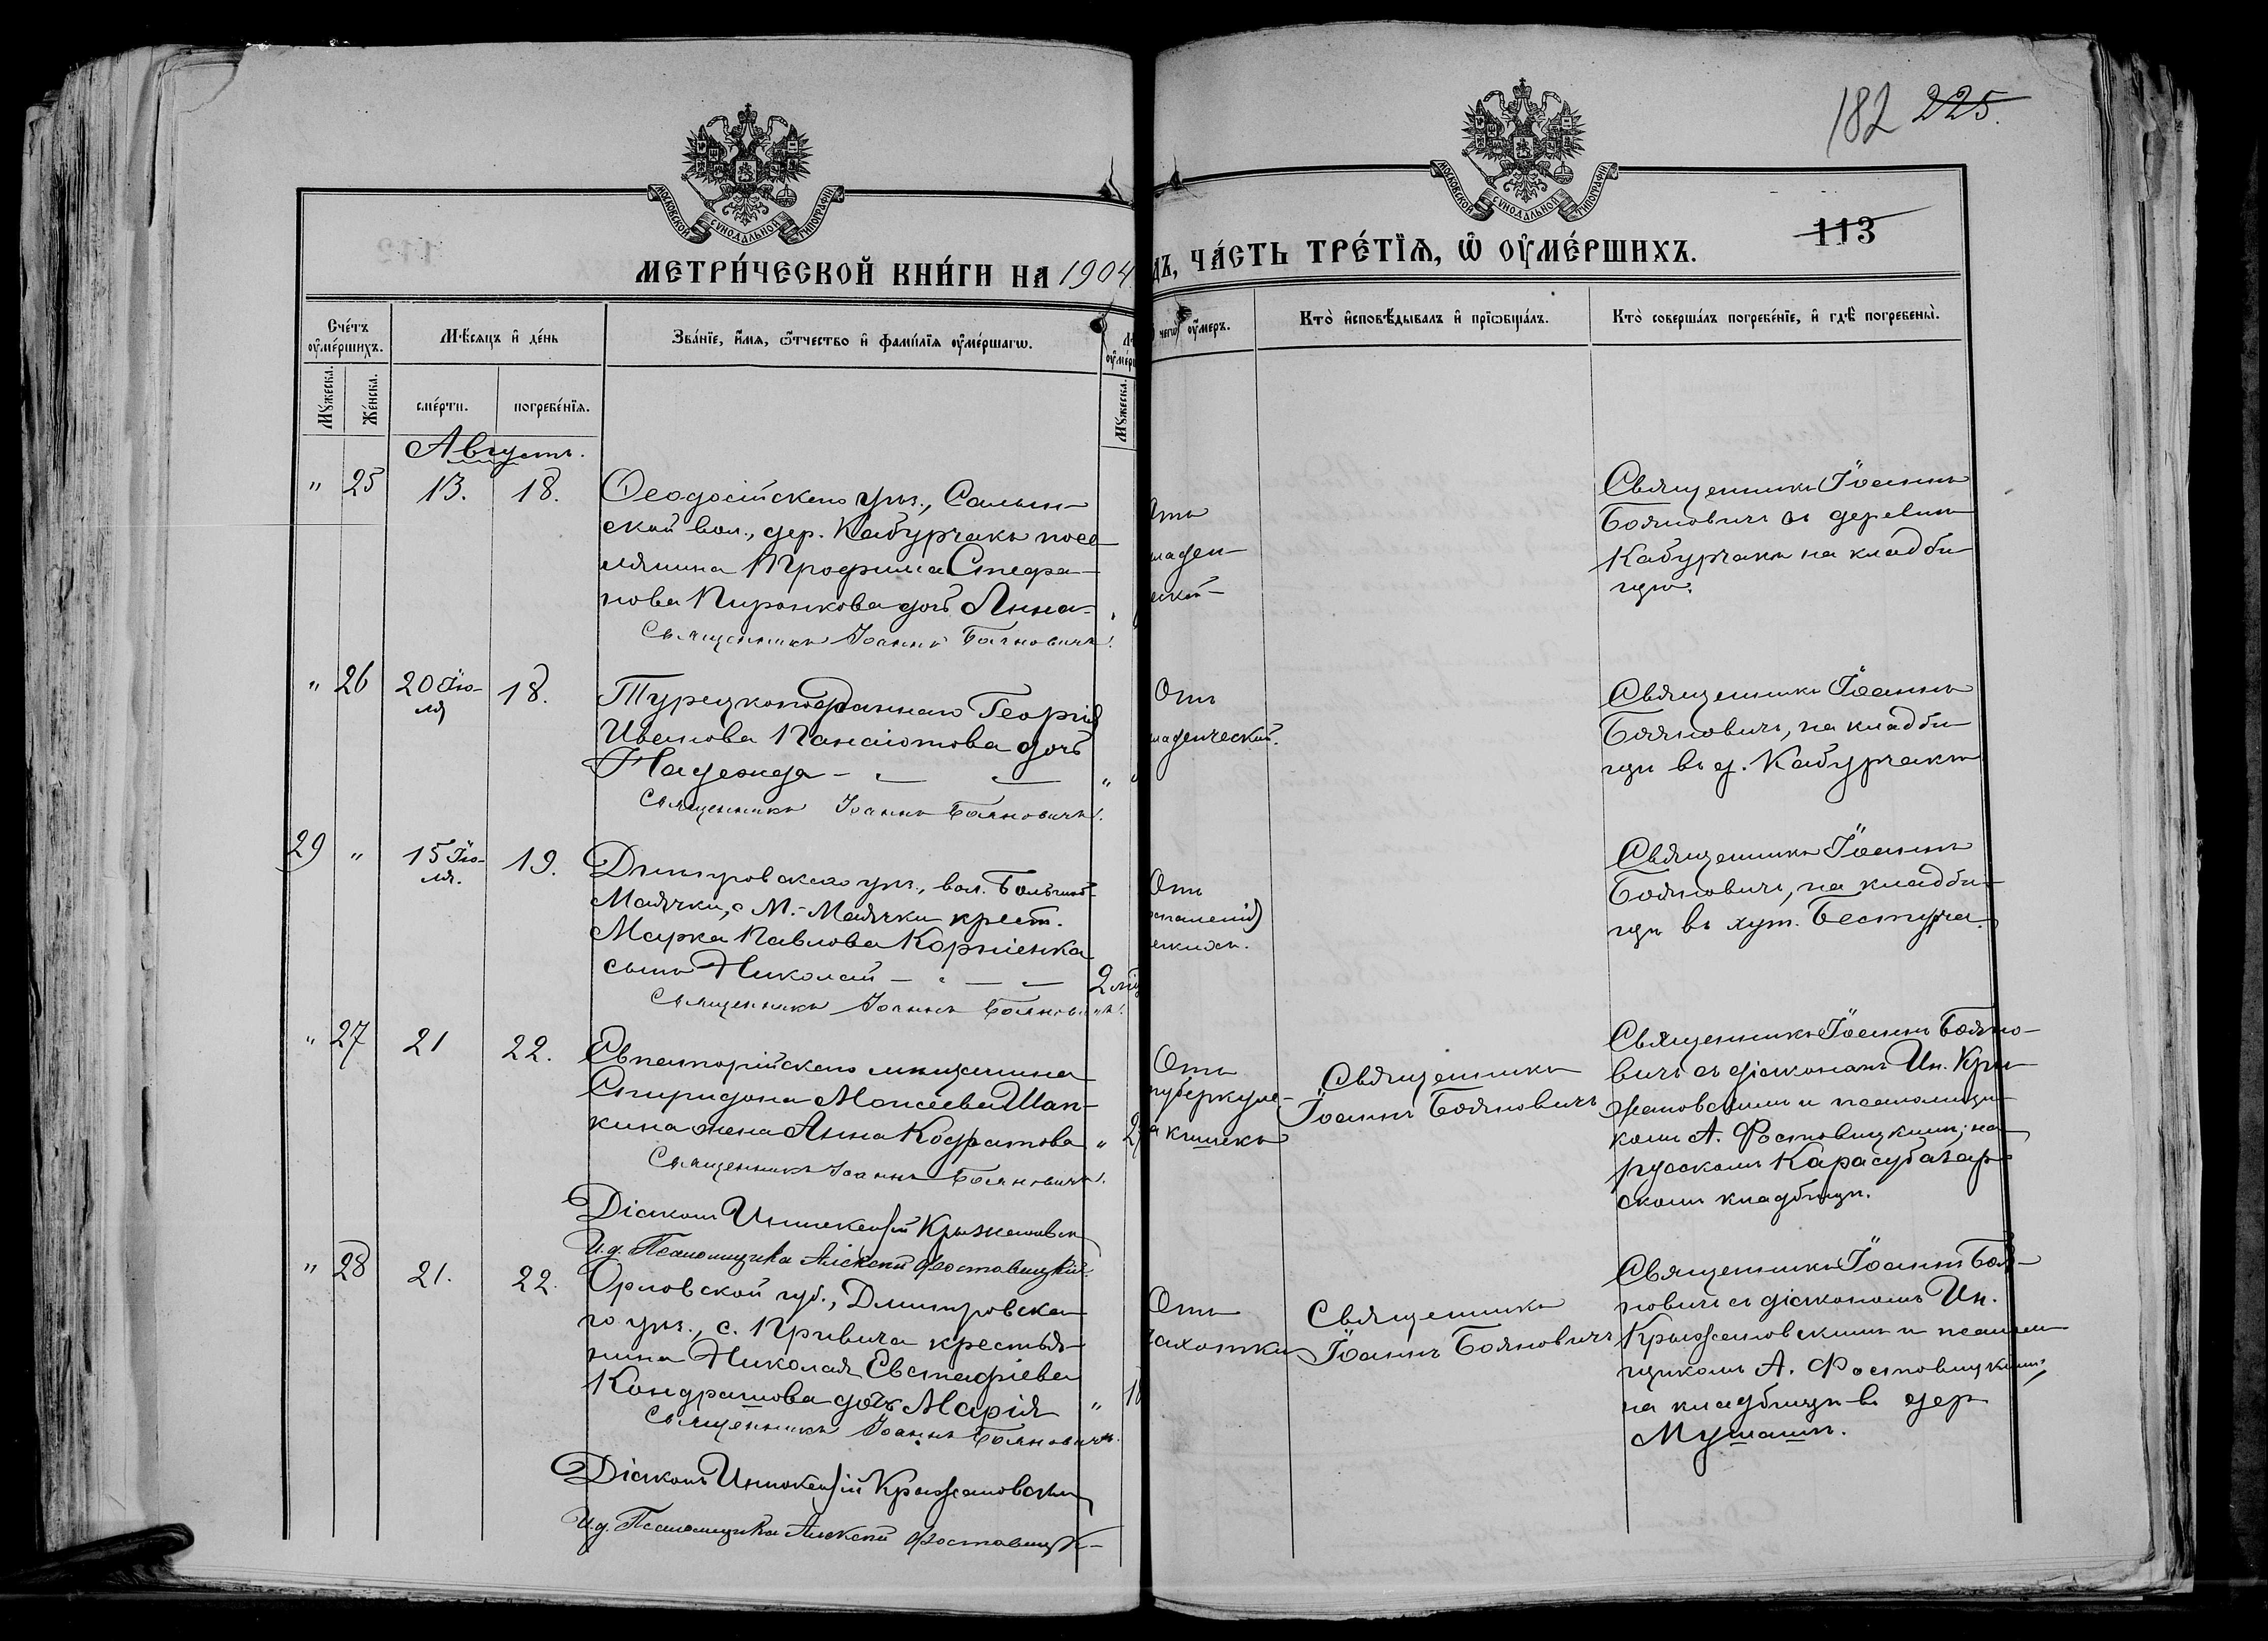 182 225.
МОСКОВСКОЙ СѴНОДАЛЬНОЙ ТИПОГРАФІИ
МОСКОВСКОЙ СѴНОДАЛЬНОЙ ТИПОГРАФІИ
113
МЕТРИ́ЧЕСКОЙ КНИ́ГИ НА 1904
ДЪ, ЧА́СТЬ ТРЕ́ТІѦ, Ѽ ОУ҆МЕ́РШИХЪ.
Сче́тъ оу҆ме́ршихъ.
Мꙋ́жеска.
Же́нска.
Мѣ́сяцъ и҆ де́нь
сме́рти.
погребе́нїя.
Зва́нїе, и҆́мя, ѻ҆́тчество и҆ фами́лїя оу҆ме́ршагѡ.
Мꙋ́жеска.
чегѡ̀ оу҆́меръ.
Кто̀ и҆сповѣ́дывалъ и҆ прїѡбща́лъ.
Кто̀ соверша́лъ погребе́нїе, и҆ гдѣ̀ погребены̀.
Августъ.
" 25 13. 18.
Ѳеодосійскаго уѣз., Салын-
ской вол., дер. Кабурчакъ посе-
лянина Трофима Стефа-
нова Пиронкова дочь Анна
Священникъ Іоаннъ Бояновичъ.
Отъ
младен-
ской
Священникъ Іоаннъ
Бояновичъ въ деревнѣ
Кабурчакъ на кладби-
щѣ.
" 26 20 Ію-
ля 18.
Турецкоподданнаго Георгія
Иванова Панаіотова дочь
Надежда
Священникъ Іоаннъ Бояновичъ.
Отъ
младенческой.
Священникъ Іоаннъ
Бояновичъ, на кладби-
щѣ въ д. Кабурчакъ
29 " 15 Ію-
ля. 19.
Днѣпровскаго уѣз., вол. Большой
Маячки, с М.-Маячки крест.
Марка Павлова Корніенка
сынъ Николай 2
Священникъ Іоаннъ Бояновичъ.
Отъ
воспаленія
Священникъ Іоаннъ
Бояновичъ, на кладби-
щѣ въ хут.
" 27 21 22.
Евпаторійскаго мѣщанина
Спиридона Моисеева Шап-
кина жена Анна Кодратова
Священникъ Іоаннъ Бояновичъ.
Діаконъ Иннокентій Крыжановскій
И.д. Псаломщика Алексѣй Фостовицкій.
Отъ
туберкуле-
за кишекъ
Священникъ
Іоаннъ Бояновичъ
Священникъ Іоаннъ Бояно-
вичъ съ діакономъ Ин. Кры-
жановскимъ и псаломщи-
комъ А. Фостовицкимъ, на
русскомъ Карасубазар-
скомъ кладбищѣ.
" 28 21. 22.
Орловской губ., Дмитровска-
го уѣз., с. Привича крестья-
нина Николая Евстафіева
Кондрашова дочь Марія
Священникъ Іоаннъ Бояновичъ.
Діаконъ Иннокентій Крыжановскій
И.д. Псаломщика Алексѣй Фостовицкій
Отъ
чахотки
Священникъ
Іоаннъ Бояновичъ
Священникъ Іоаннъ Боя-
новичъ съ діакономъ Ин.
Крыжановскимъ и псалом-
щикомъ А. Фостовицкимъ,
на кладбищѣ въ дер
Мушашъ.